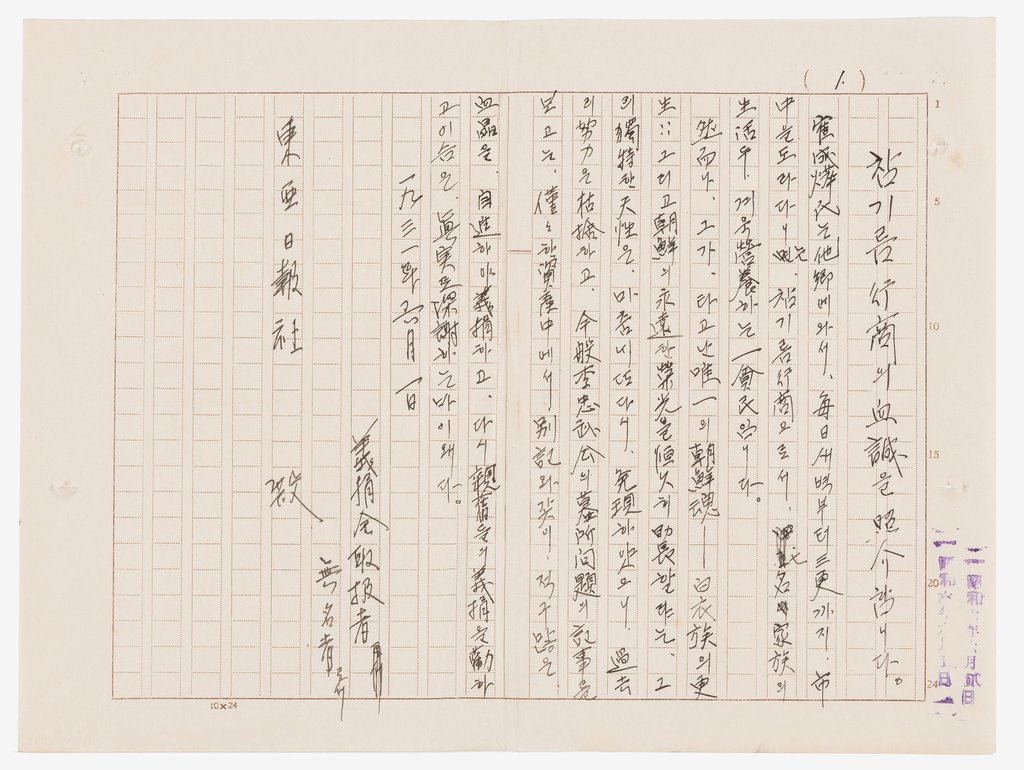 (1.)
참기름行商의血誠을紹介합니다。
崔成燁氏는他鄕에와서、每日새벽부터三更까지、市
中을도라다니며는、참기름行商으로서、七名家族의
生活우겨우營養하는一貧民임니다。
然而나、그가、타고난唯一의朝鮮魂——白衣族의更
生::그리고朝鮮의永遠한榮光을恒久히助長할다는、그
의獨特한天性은、마츰내또다시、發現하얏으니、過去
의努力은枯捨하고、今般李忠武公의墓所問題의記事을
보고는、僅々한貲産中에서、別記와갓이、적구많은
血晶을、自進하야義捐하고、다시親舊들의義捐을勸하
고이슴은、眞実로深謝하는바이왜다。
一九三一年六月一日
義捐金取扱者
無名者
東亜日報社 殿
1
5
10
15
20
24
10×24
昭和六年六月貳日